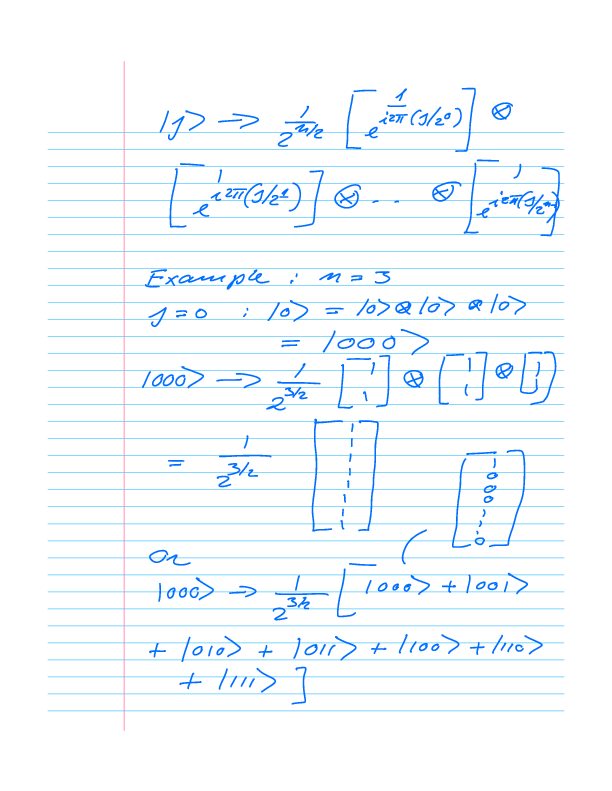 |j> → 1/2^{n/2} [1 e^{i2π(j/2^0)}] ⊗
[1 e^{i2π(j/2^1)}] ⊗ .. ⊗ [1 e^{i2π(j/2^n)}]
Example : n = 3
j = 0 : |0> = |0> ⊗ |0> ⊗ |0>
= |000>
|000> → 1/2^{3/2} [1 1] ⊗ [1 1] ⊗ [1 1]
= 1/2^{3/2} [1 1 1 1 1 1 1 1] [1 0 0 0 . . . 0]
or
|000> → 1/2^{3/2} [ |000> + |001>
+ |010> + |011> + |100> + |110>
+ |111> ]